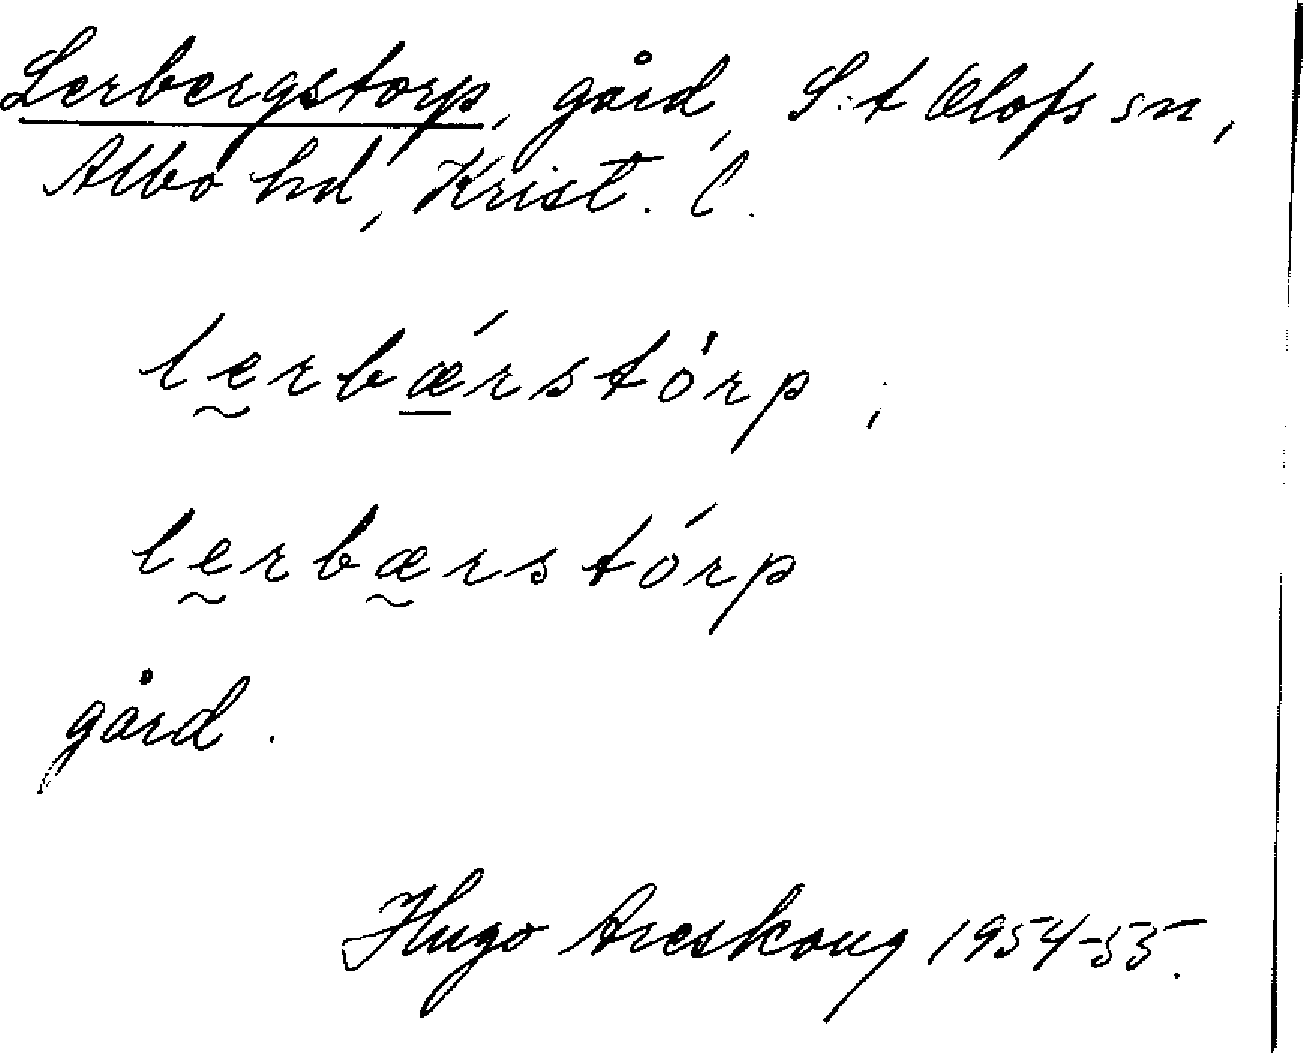 Lerbergstorp, gård, S:t Olofs sn,
Albo hd, Krist. l.
lḛrbǽ̲rstòrp,
lḛrbæ̰rstórp
gård.
Hugo Areskoug 1954-55.